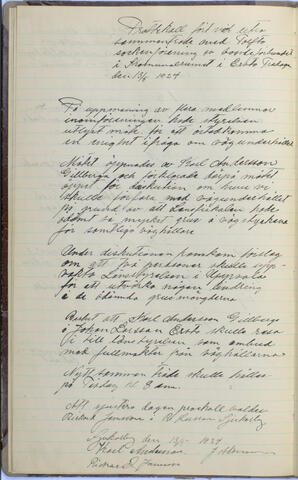 Protokoll fört vid extra
sammanträde med Tofta
sockenförening av bondeförbundet
i Kommunalrummet i Ersta Tisdagen
den 13/5 1924
På uppmaning av flera medlemmar
inom föreningen hade styrelsen
utlyst möte för att åstadkomma
en enighet ifråga om vägunderhållet
Mötet öppnades av Karl Andersson
Gillberga och förklarade derpå mötet
öppet för diskution om huru vi
skulle förfara med vägunderhållet
på grund av att Landsfiskalen hade
utdömt så mycket grus å vägstyckena
för samtliga väghållare
Under diskutionen framkom förslag
om att två personer skulle upp-
vakta Länsstyrelsen i Uppsala
för att utvärka någon lindring
i de ådömda grusmängderna
Beslöt att Karl Andersson Gillberga
o Johan Larsson Ersta skulle resa
in till länsstyrelsen som ombud
med fullmakter från väghållarna
Nytt samman träde skulle hållas
på Tisdag kl 8 em.
Att justera dagens protokoll valdes
Rickard Jansson o
den 13/5 1924
Karl Andersson
Rickard Jansson